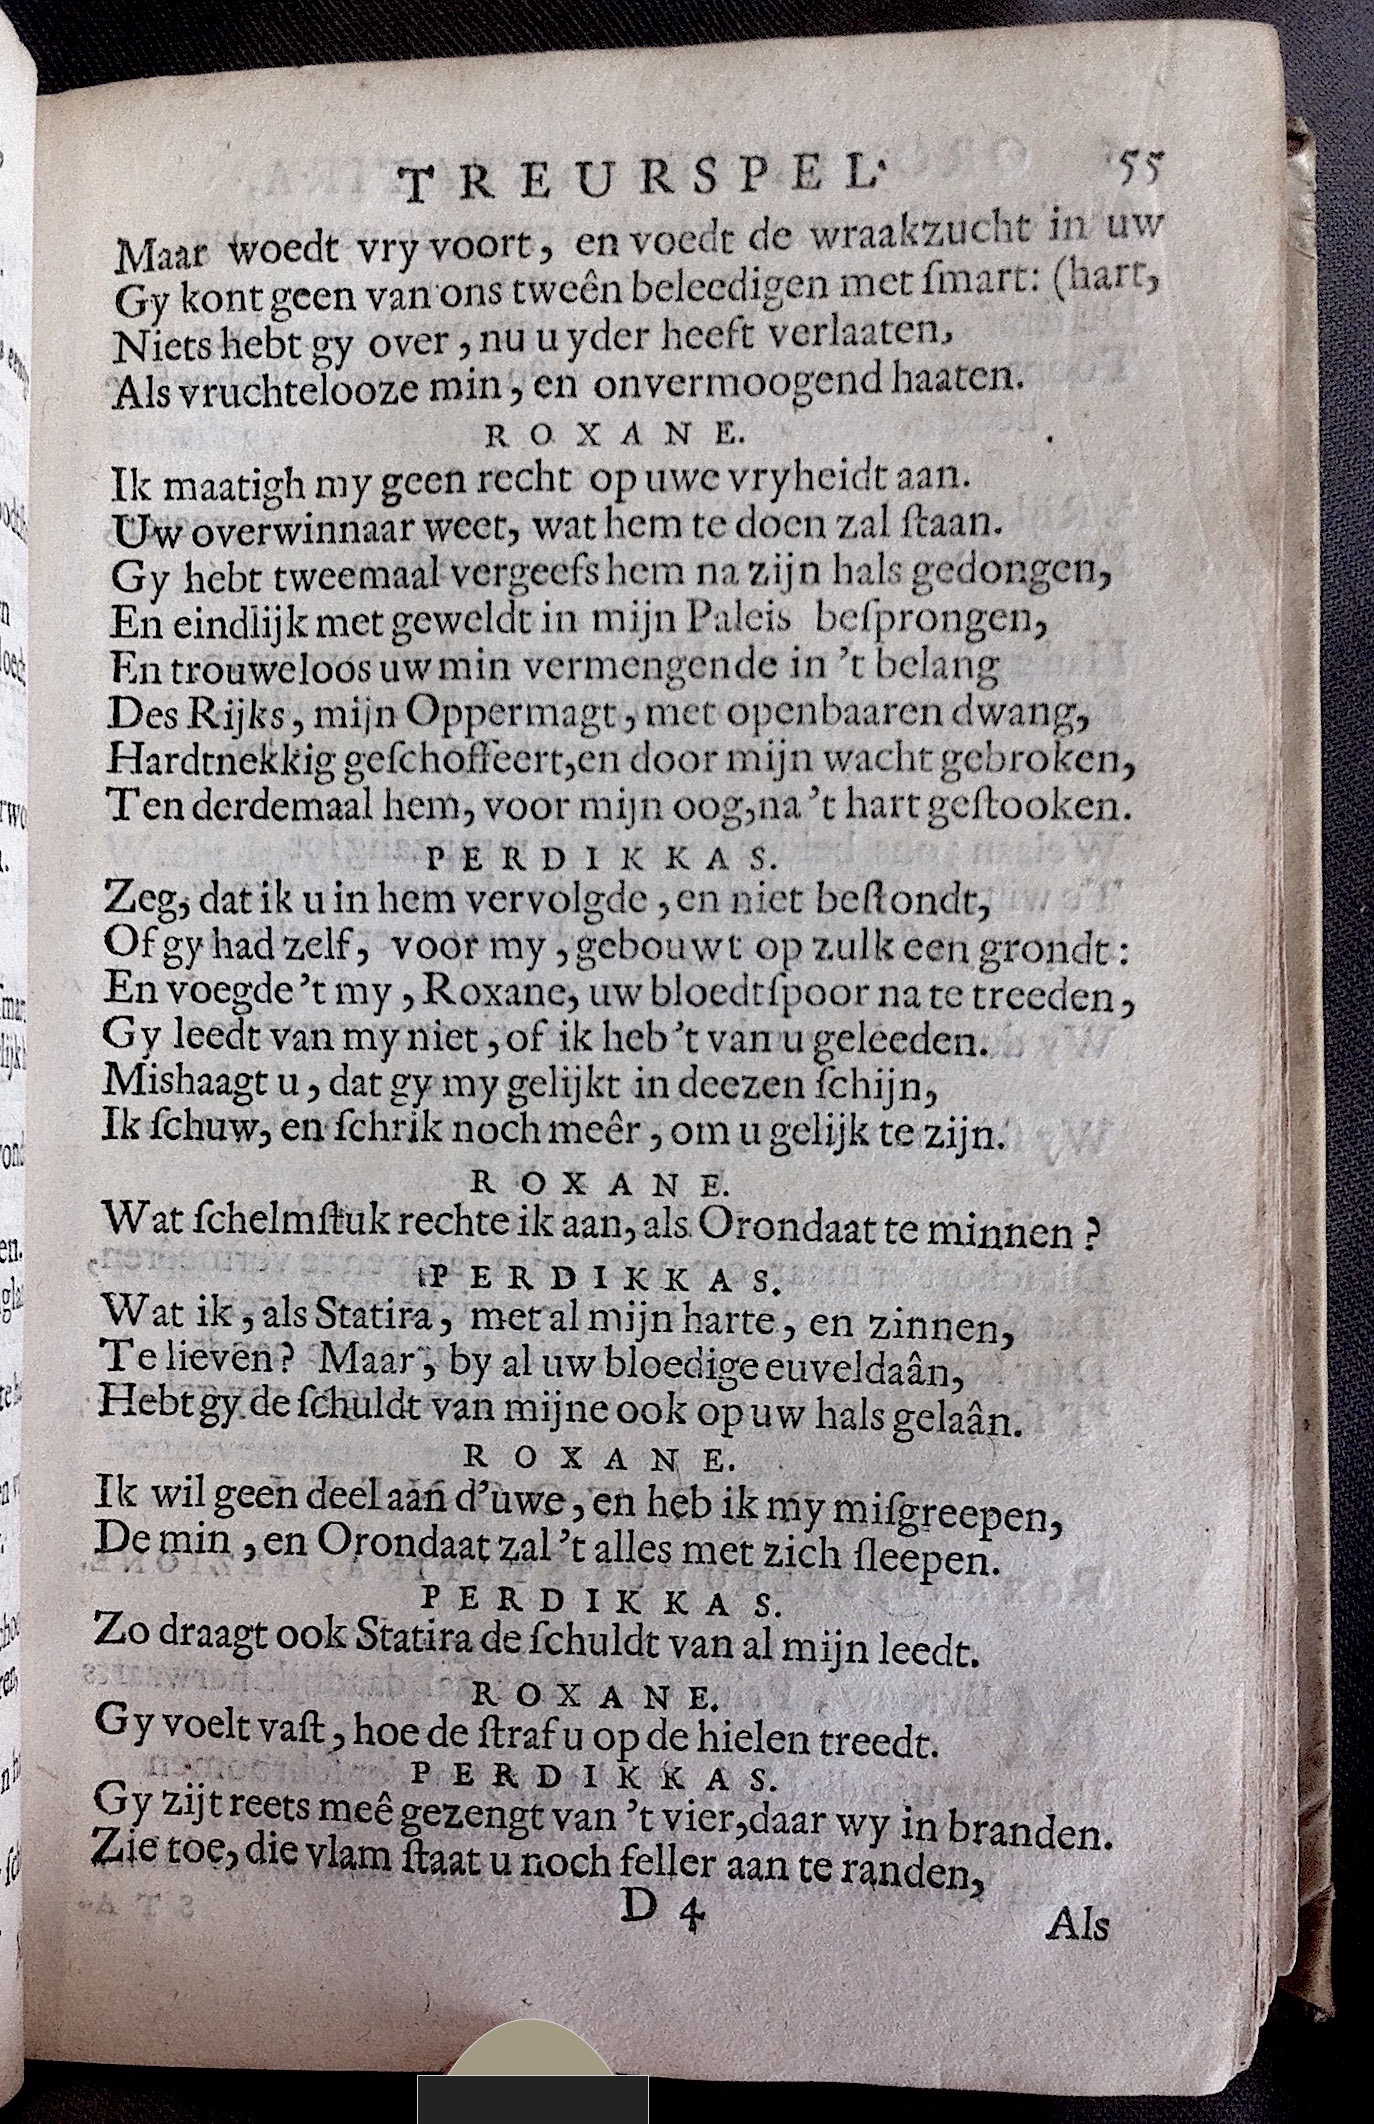 TREURSPEL. 55
Maar woedt vry voort, en voedt de wraakzucht in uw
Gy kont geen van ons tweên beleedigen met ſmart: (hart,
Niets hebt gy over, nu u yder heeft verlaaten,
Als vruchtelooze min, en onvermoogend haaten.
ROXANE.
Ik maatigh my geen recht op uwe vryheidt aan.
Uw overwinnaar weet, wat hem te doen zal ſtaan.
Gy hebt tweemaal vergeefs hem na zijn hals gedongen,
En eindlijk met geweldt in mijn Paleis beſprongen,
En trouweloos uw min vermengende in 't belang
Des Rijks, mijn Oppermagt, met openbaaren dwang,
Hardtnekkig geſchoffeert, en door mijn wacht gebroken,
Ten derdemaal hem, voor mijn oog, na 't hart geſtooken.
PERDIKKAS.
Zeg, dat ik u in hem vervolgde, en niet beſtondt,
Of gy had zelf, voor my, gebouwt op zulk een grondt:
En voegde 't my, Roxane, uw bloedtſpoor na te treeden,
Gy leedt van my niet, of ik heb 't van u geleeden.
Mishaagt u, dat gy my gelijkt in deezen ſchijn,
Ik ſchuw, en ſchrik noch meêr, om u gelijk te zijn.
ROXANE.
Wat ſchelmſtuk rechte ik aan, als Orondaat te minnen?
PERDIKKAS.
Wat ik, als Statira, met al mijn harte, en zinnen,
Te lieven? Maar, by al uw bloedige euveldaân,
Hebt gy de ſchuldt van mijne ook op uw hals gelaân.
ROXANE.
Ik wil geen deel aan d'uwe, en heb ik my miſgreepen,
De min, en Orondaat zal 't alles met zich ſleepen.
PERDIKKAS.
Zo draagt ook Statira de ſchuldt van al mijn leedt.
ROXANE.
Gy voelt vaſt, hoe de ſtraf u op de hielen treedt.
PERDIKKAS.
Gy zijt reets meê gezengt van 't vier, daar wy in branden.
Zie toe, die vlam ſtaat u noch feller aan te randen,
D 4
Als